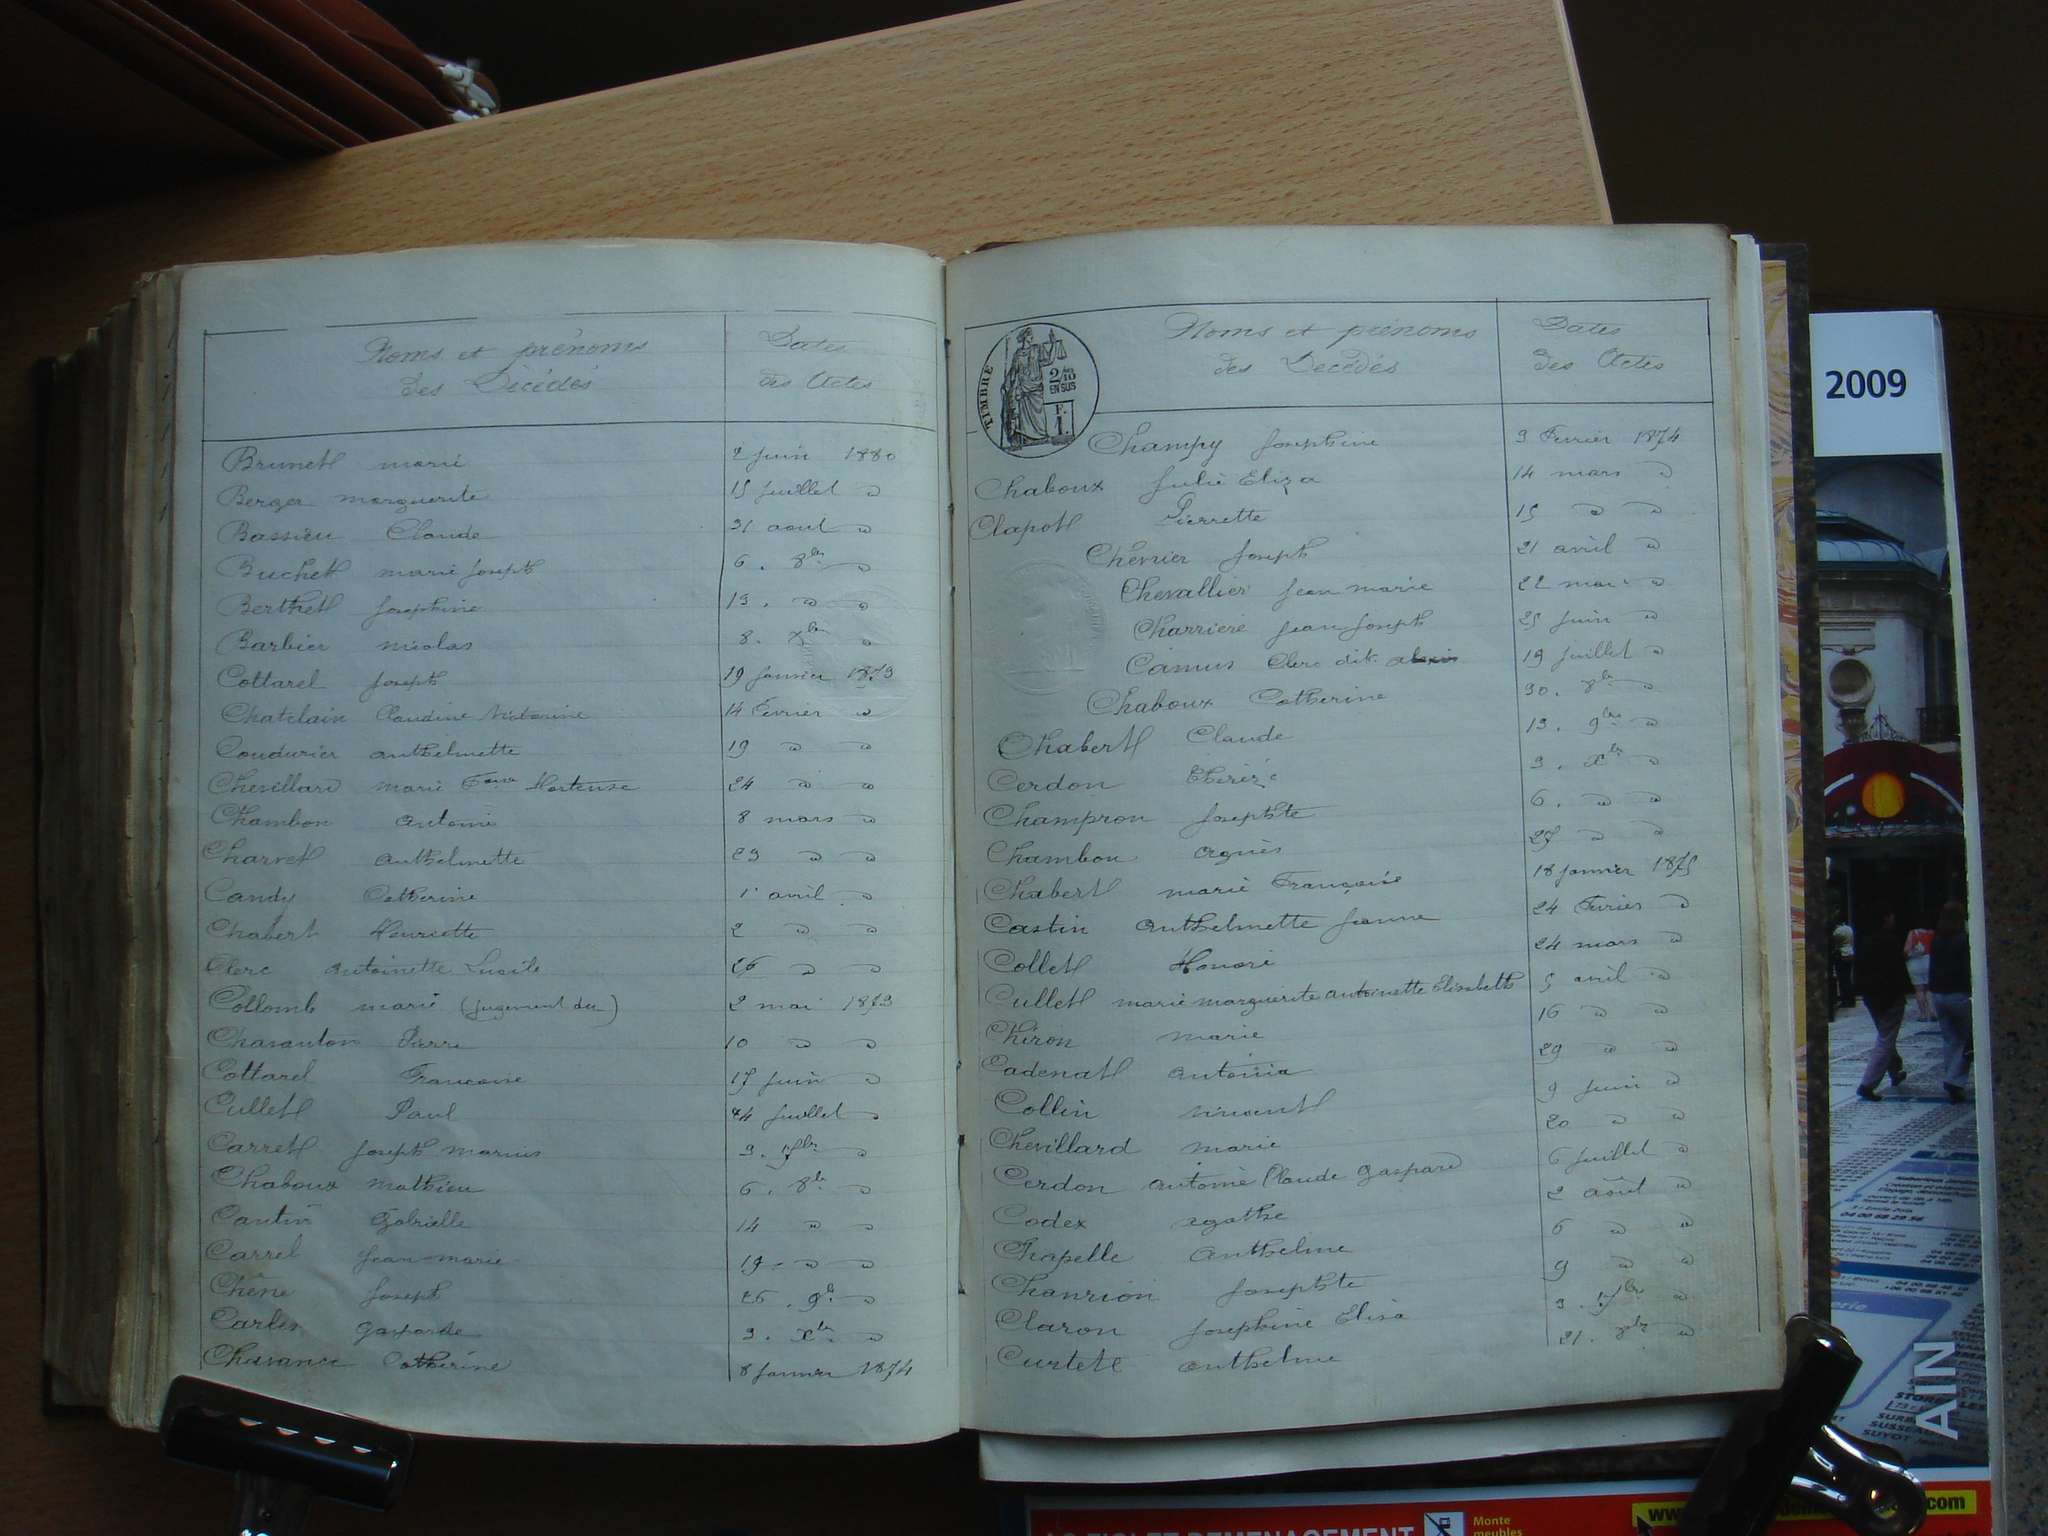 Noms et prénoms
des Décédés
Dates
des Actes
Brunet marie 2 juin 1880
Berger marguerite 15 juillet "
Bassieu Claude 31 aout "
Buchet marie joseph 6. 8bre "
Berthet Josephine 13. " "
Barbier nicolas 8. Xbre "
Cottarel joseph 19 janvier 1873
Chatelain Claudine Victorine 14 Fevrier "
Coudurier anthelmette 19 " "
Chevillard marie Fçoise Hortense 24 " "
Chambon antoine 8 mars "
Charvet anthelmette 23 " "
Candy Catherine 1er avril "
Chabert Henriette 2 " "
Clerc antoinette Lucile 26 " "
Collomb marie (jugement du) 2 mai 1873
Chavanton Pierre 10 " "
Cottarel Francoise 17 juin "
Cullet Paul 24 juillet "
Carret joseph marius 3. 7bre "
Chaboux mathieu 6. 8bre "
Cantin Gabrielle 14 " "
Carrel jean marie 19 " "
Chêne joseph 26. 9b "
Carles gasparde 3. Xbre "
Chavance Catherine 8 janvier 1874
TIMBRE
2/10
EN SUS
F.
1.
Noms et prénoms
des Décédés
Dates
des Actes
Champy Josephine 3 Fevrier 1874
Chaboux Julie Eliza 14 mars "
Clapot Pierrette 15 " "
Chenier Joseph 21 avril "
Chevallier jean marie 22 mai "
Charriere jean joseph 25 juin "
Camus Clerc dit alexis 19 juillet "
Chaboux Catherine 30. 8bre "
Chabert Claude 13. 9bre "
Cerdon 3. Xbre "
Champron josephte 6. " "
Chambon agnès 25 " "
Chabert marie Françoise 18 janvier 1875
Castin anthelmette jeanne 24 Fevrier "
Collet Honoré 24 mars "
Cullet marie marguerite antoinette Elisabeth 5 avril "
Chiron marie 16 " "
Cadenat antonia 29 " "
Collin vincent 9 juin "
Chevillard marie 20 " "
Cerdon antoine Claude gaspard 6 juillet "
Codex agathe 2 août "
Chapelle anthelme 6 " "
Chanrion josephte 9 " "
Claron josephine Elisa 3. 7bre "
Curtet anthelme 21. 7bre "
2009
AIN
Monte
meubles